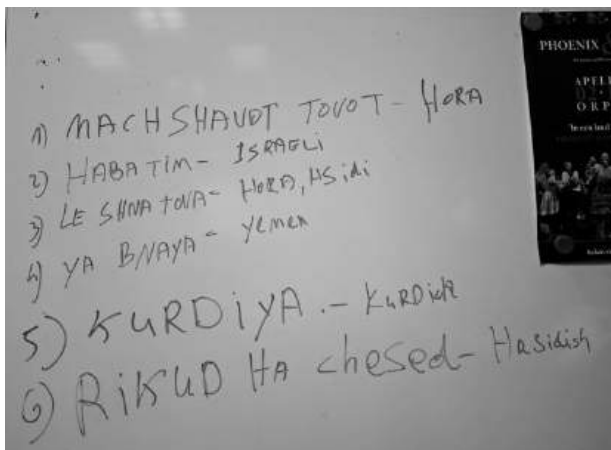 1) MACHSHAVOT TOVOT - HORA
2) HABATIM - ISRAELI
3) LE SHNA TOVA - HORA, HSidi
4) YA BNAYA - YEMEN
5) KURDiYA. - KURDish
6) RiKUD HA chesed - Hasidish
PHOENIX